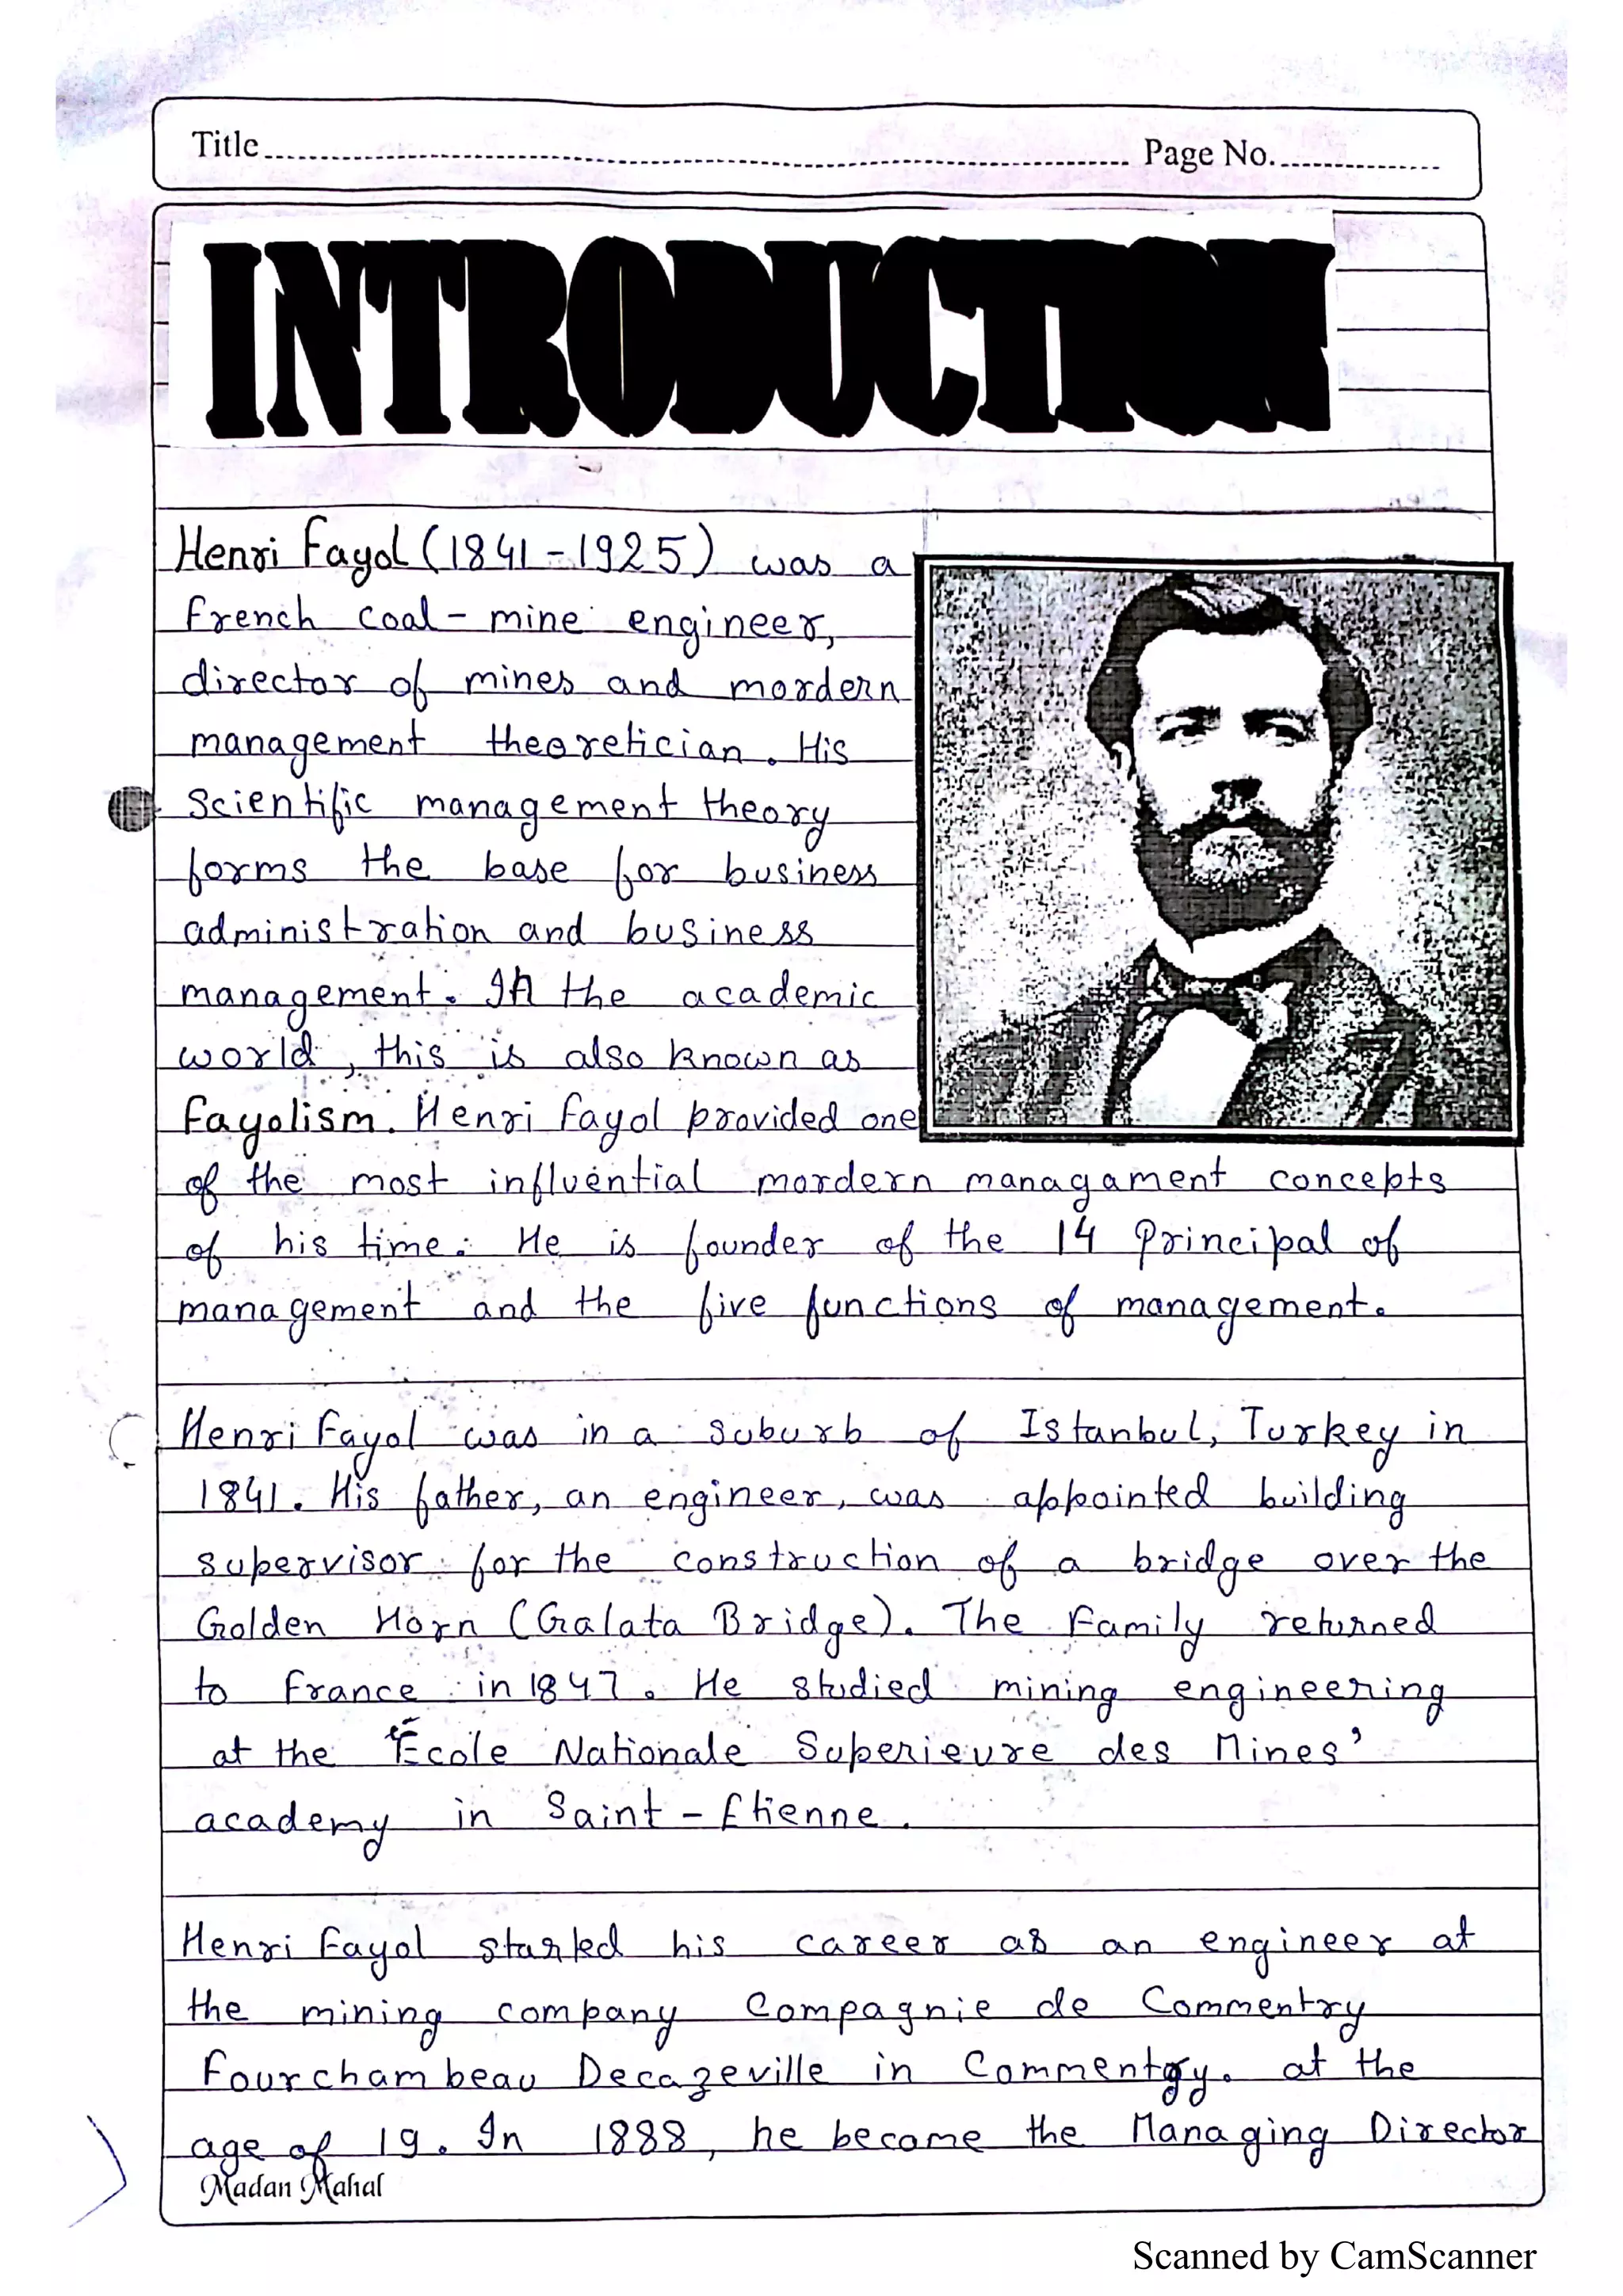 Title Page No.
INTRODUCTION
Henri Fayol (1841-1925) was a
French coal-mine engineer,
director of mines and mordern
management theoretician. His
Scientific management theory
forms the base for business
administration and business
management. In the academic
world, this is also known as
Fayolism. Henri Fayol provided one
of the most influential mordern managament concepts
of his time. He is founder of the 14 Principal of
management and the five functions of management.
Henri Fayol was in a suburb of Istanbul, Turkey in
1841. His father, an engineer, was appointed building
supervisor for the construction of a bridge over the
Golden Horn (Galata Bridge). The Family returned
to France in 1847. He studied mining engineering
at the 'École Nationale Superieure des Mines'
academy in Saint-Etienne.
Henri Fayol started his career as an engineer at
the mining company Compagnie de Commentry
Fourchambeau Decazeville in Commentry. at the
age of 19. In 1888, he became the Managing Director
Madan Mahal
Scanned by CamScanner